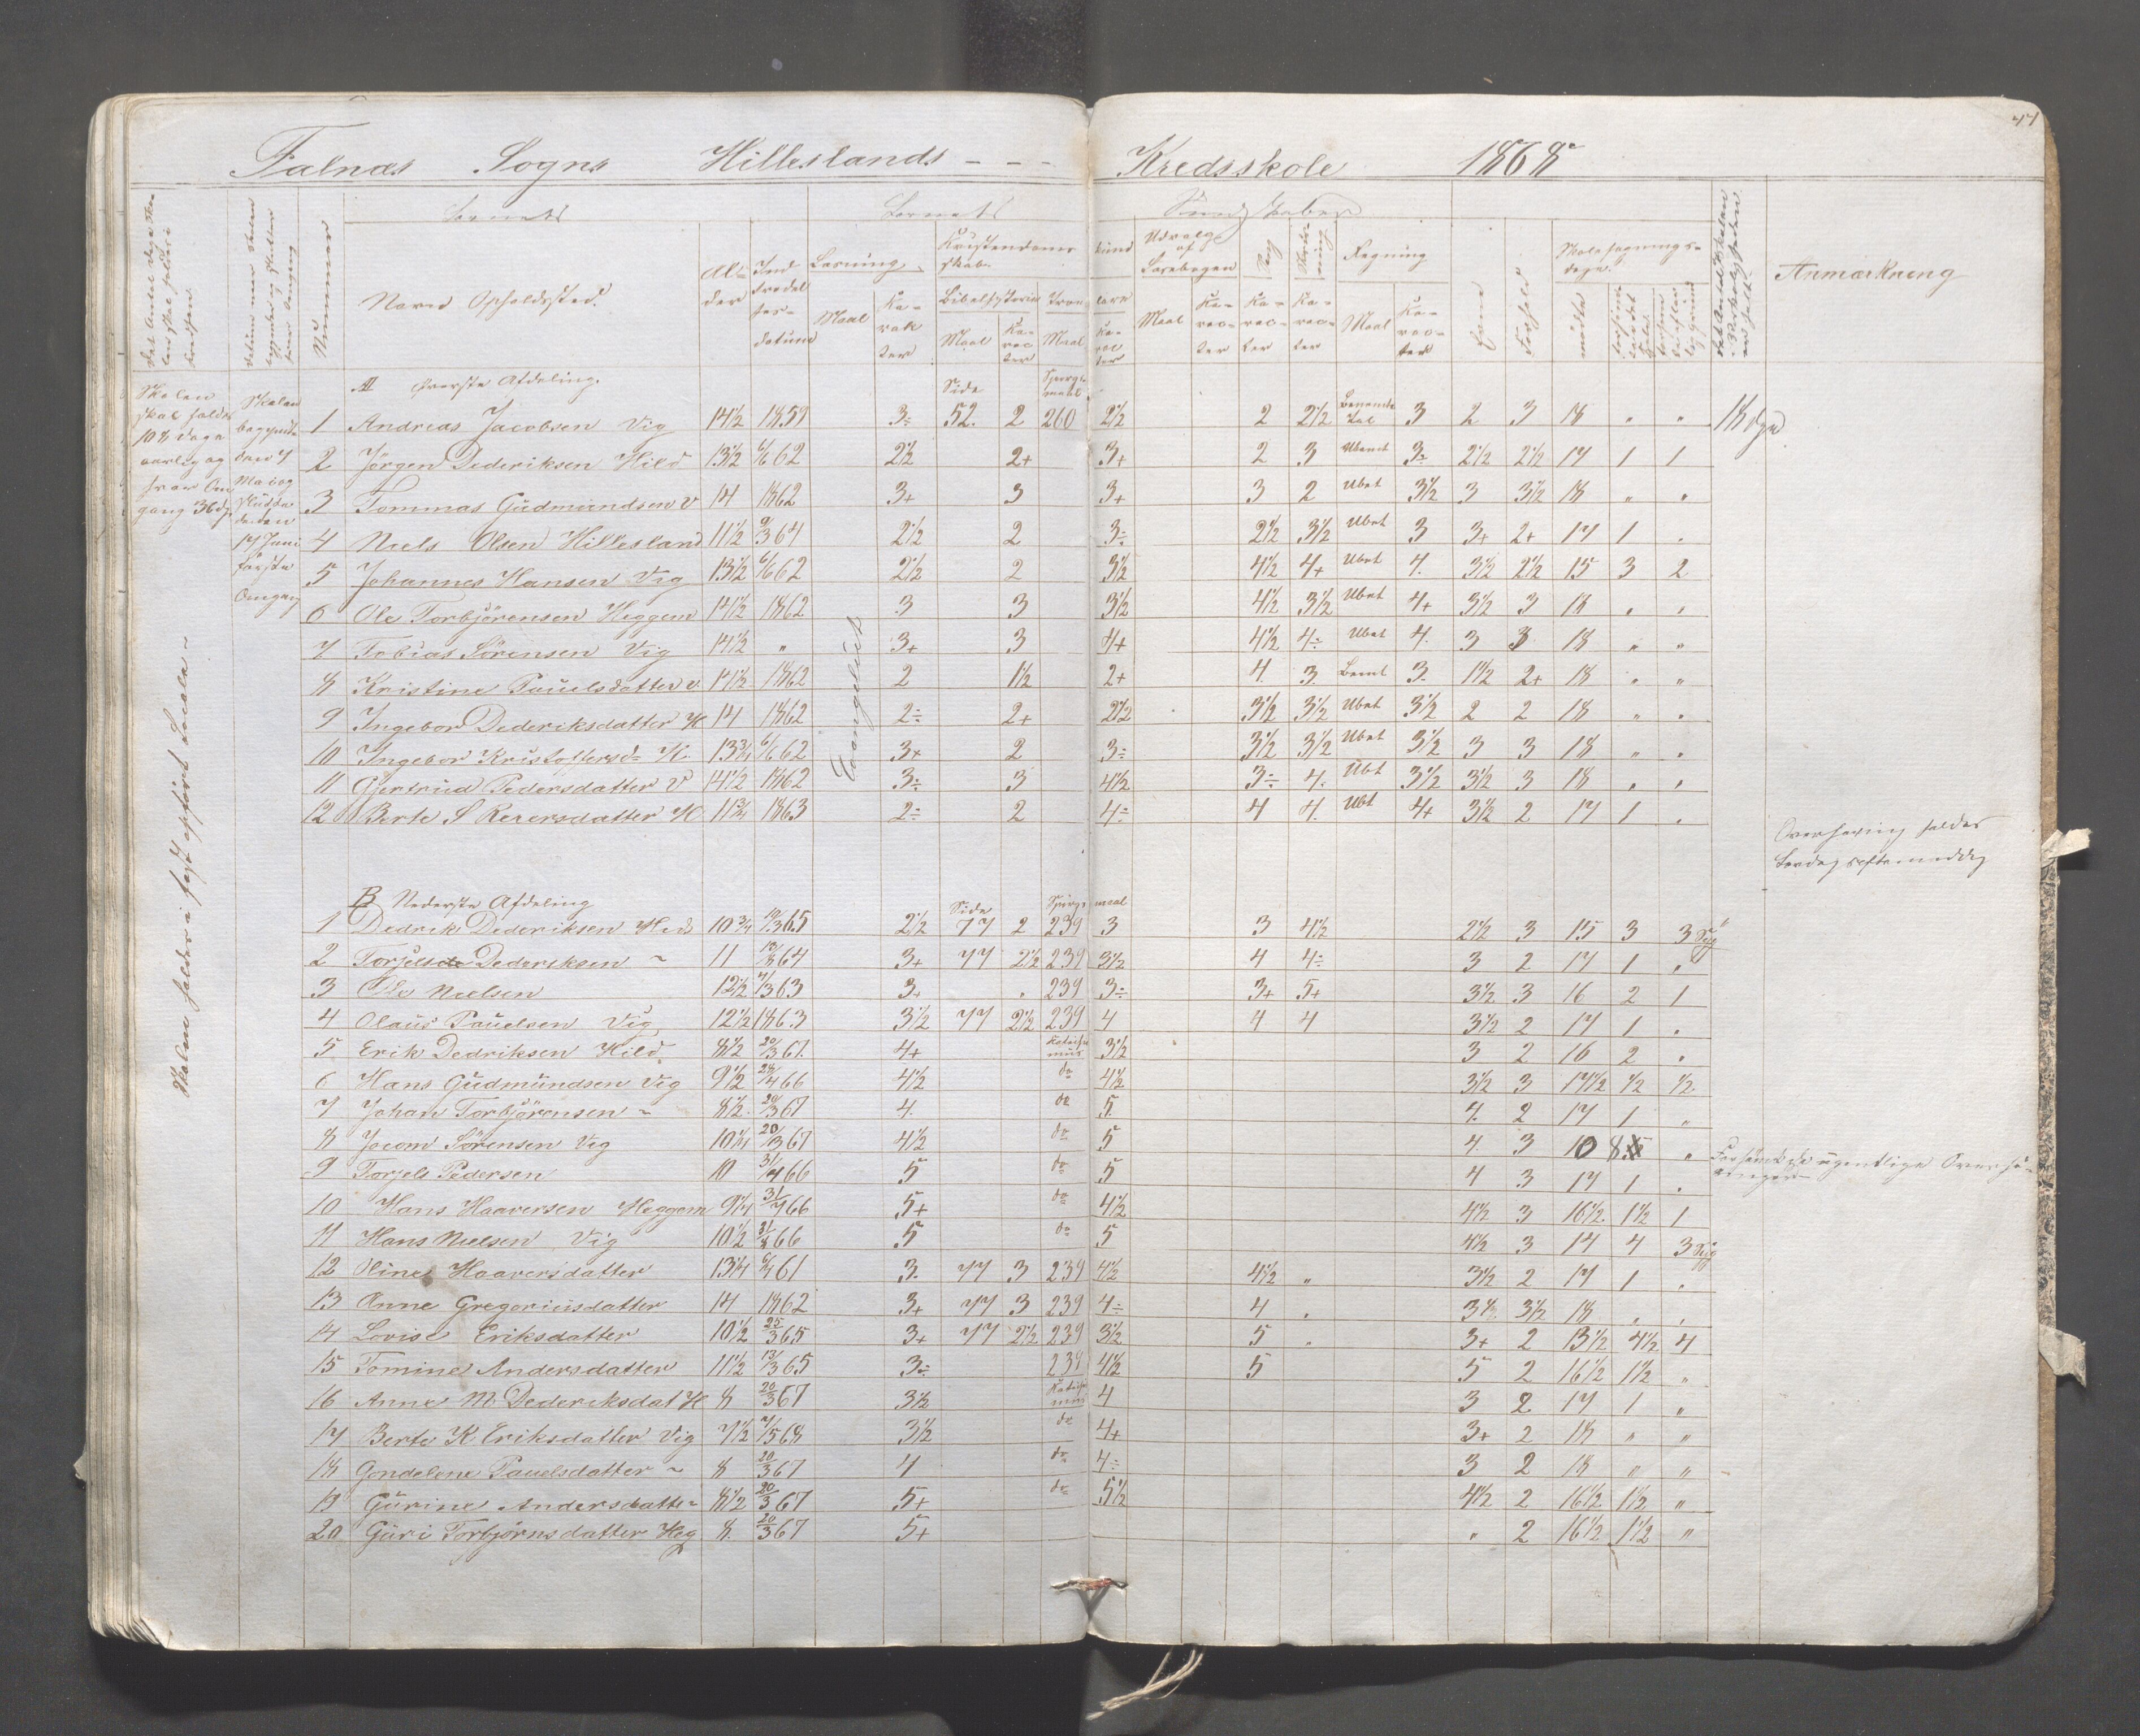 47
Falnæs Sogns Hilleslands - - - Kredsskole 1868
Barnets Barnets Kundskaber
Nummer Navn Opholdssted. Alder Indtrædelsesdatum Læsning Kristendomskundskab. Udvalg af Læsebogen Sang Skrivning Regning Evne Forhold Skolesøgningsdage. Anmærkning
Maal Karakter Bibelhistorie Troeslære Maal Karacter Karacter Karacter Maal Karacter mødte
Maal Karacter Maal Karacter
A Øverste Afdeling. Side Spørgsmaal
Skolen skal holdes 108 dage aarlig og hver Omgang 36 dg
Skolen begyndte den 7 Mai og sluttede den 17 Juni første Omgang
Skolen holdes i fast opført Locale ~
Evangeliet
1 Andreas Jacobsen Vig 14½ 1859 3÷ 52. 2 260 2½ 2 2½ Benævnte Tal 3 2 3 18 " " 18 dge
2 Jörgen Dederiksen Hild 13½ 6/6 62 2½ 2+ 3+ 2 3 Ubent 3÷ 2½ 2½ 17 1 1
3 Tommas Gudmundsen V 14 1862 3+ 3 3+ 3 2 Ubet 3½ 3 3½ 18 " "
4 Niels Olsen Hillesland 11½ 9/3 64 2½ 2 3÷ 2½ 3½ Ubet 3 3+ 2+ 17 1 .
5 Johannes Hansen Vig 13½ 6/6 62 2½ 2 3½ 4½ 4+ Ubet 4. 3½ 2½ 15 3 2
6 Ole Torbjörensen Heggem 14½ 1862 3 3 3½ 4½ 3½ Ubet 4+ 3½ 3 18 " "
7 Tobias Sörensen Vig 14½ " 3+ 3 4+ 4½ 4÷ Ubet 4. 3 3 18 " "
8 Kristine Pauelsdatter V. 14½ 1862 2 1½ 2+ 4. 3. Bent 3. 1½ 2+ 18 " "
9 Ingebor Dederiksdatter H 14 1862 2÷ 2+ 2½ 3½ 3½ Ubet 3½ 2 2 18 " .
10 Ingebor Kristoffersd= H. 13¾ 6/6 62 3+ 2 3÷ 3½ 3½ Ubet 3½ 3 3 18 " .
11 Gjertrud Pedersdatter V 14½ 1862 3÷ 3 4½ 3÷ 4. Ubt 3½ 3½ 3 18 " "
12 Berte S Reiersdatter H 11¾ 1863 2÷ 2 4÷ 4 4. Ubt 4+ 3½ 2 17 1 .
Overhøring holdes
Lørdag eftermiddag
B Nederste Afdeling Side Spørgsmaal
1 Dedrik Dederiksen Hild 10¾ 19/3 65 2½ 77 2 239 3 3 4½ 2½ 3 15 3 3 Syg
2 Torjels Dederiksen ~ 11 13/3 64 3+ 77 2½ 239 3½ 4 4÷ 3 2 17 1 "
3 Ole Nielsen 12½ 7/3 63 3+ . 239 3÷ 3+ 5+ 3½ 3 16 2 1
4 Olaus Pauelsen Vig 12½ 1863 3½ 77 2½ 239 4 4 4 3½ 2 17 1 .
5 Erik Dedriksen Hild. 8½ 20/3 67. 4+ Katechismus 3½ 3 2 16 2 .
6 Hans Gudmundsen Vig 9½ 24/4 66 4½ do 4½ 3½ 3 17½ ½ ½
7 Johan Torbjörensen ~ 8½. 20/3 67 4. do 5. 4. 2 17 1 "
8 Jocom Sörensen Vig 10¼ 20/3 67 4½ do 5 4. 3 10 8 "
9 Torjels Pedersen 10 31/4 66 5 do 5 4 3 17 1 .
10 Hans Haaversen Heggem 9¼ 31/4 66 5+ do 4½ 4½ 3 16½ 1½ 1
11 Hans Nielsen Vig 10½ 31/8 66 5 do 5 4½ 3 14 4 3 Syg
12 Oline Haaversdatter 13¼ 6/4 61 3. 77 3 239 4½ 4½ " 3½ 2 17 1 .
13 Anne Gregoriusdatter 14 1862 3+ 77 3 239 4÷ 4 . 3½ 3½ 18 . .
14 Lovise Eriksdatter 10½ 25/3 65 3+ 77 2½ 239 3½ 5 . 3+ 2 13½ 4½ 4
15 Tomine Andersdatter 11½ 13/3 65 3÷ 239 4½ 5 5 2 16½ 1½ "
16 Anne M Dederiksdat H 8 20/3 67 3½ Katechismus 4 3 2 17 1 "
17 Berte K Eriksdatter Vig 7½ 7/5 68 3½ do 4+ 3+ 2 18 " "
18 Gondelene Pauelsdatter ~ 8 20/3 67 4 do 4÷ 3 2 18 " "
19 Gurine Andersdatter 8½ 20/3 67 5+ do 5½ 4½ 2 16½ 1½ "
20 Guri Torbjörnsdatter Heg 8. 20/3 67 5+ " 2 16½ 1½ "
ugentlige Overhøringer